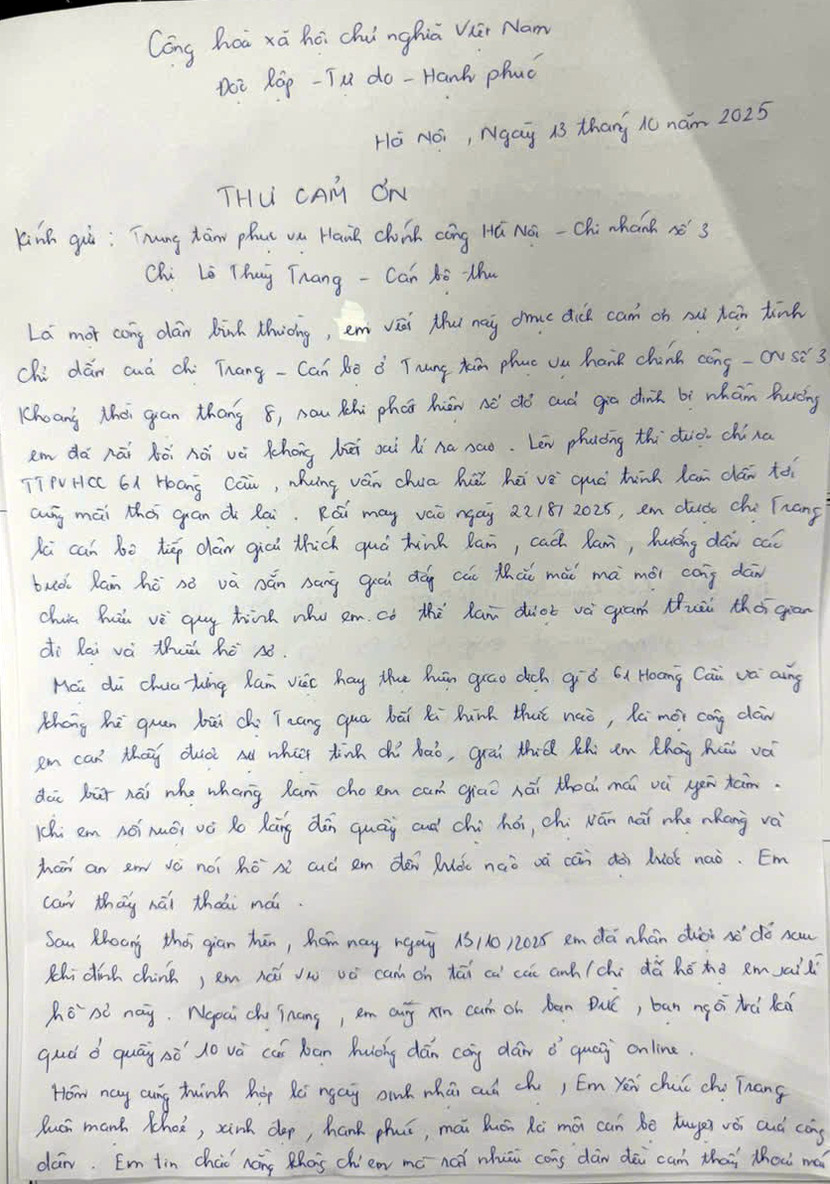 Cộng hoà xã hội chủ nghĩa Việt Nam
Độc lập - Tự do - Hạnh phúc
Hà Nội, Ngày 13 tháng 10 năm 2025
THƯ CẢM ƠN
Kính gửi : Trung tâm phục vụ Hành chính công Hà Nội - Chi nhánh số 3
Chị Lê Thuỳ Trang - Cán bộ thu
Là một công dân bình thường, em viết thư này mục đích cảm ơn sự tận tình
chỉ dẫn của chị Trang - Cán bộ ở Trung tâm phục vụ hành chính công - CN số 3
Khoảng thời gian tháng 8, sau khi phát hiện sổ đỏ của gia đình bị nhầm hướng
em đã rất bối rối và không biết xử lí ra sao. Lên phường thì được chỉ ra
TTPVHCC 61 Hoàng Cầu, nhưng vẫn chưa hiểu hết về quá trình làm dẫn tới
cũng mất thời gian đi lại. Rất may vào ngày 22/8/2025, em được chị Trang
là cán bộ tiếp dân giải thích quá trình làm, cách làm, hướng dẫn các
bước làm hồ sơ và sẵn sàng giải đáp các thắc mắc mà một công dân
chưa hiểu về quy trình như em có thể làm được và giảm thiểu thời gian
đi lại và thiếu hồ sơ.
Mặc dù chưa từng làm việc hay thực hiện giao dịch gì ở 61 Hoàng Cầu và cũng
không hề quen biết chị Trang qua bất kì hình thức nào, là một công dân
em cảm thấy được sự nhiệt tình chỉ bảo, giải thích khi em không hiểu và
đặc biệt rất nhẹ nhàng làm cho em cảm giác rất thoải mái và yên tâm.
Khi em sốt ruột và lo lắng đến quầy của chị hỏi, chị vẫn rất nhẹ nhàng và
trấn an em và nói hồ sơ của em đến bước nào và cần đợi bước nào. Em
cảm thấy rất thoải mái.
Sau khoảng thời gian trên, hôm nay ngày 13/10/2025 em đã nhận được sổ đỏ sau
khi đính chính, em rất vui và cảm ơn tất cả các anh/chị đã hỗ trợ em xử lí
hồ sơ này. Ngoài chị Trang, em cũng xin cảm ơn bạn Đức, bạn ngồi trả kết
quả ở quầy số 10 và các bạn hướng dẫn công dân ở quầy online.
Hôm nay cũng trùng hợp là ngày sinh nhật của chị, Em Yến chúc chị Trang
luôn mạnh khoẻ, xinh đẹp, hạnh phúc, mãi luôn là một cán bộ tuyệt vời của công
dân. Em tin chắc rằng không chỉ em mà rất nhiều công dân đều cảm thấy thoải mái